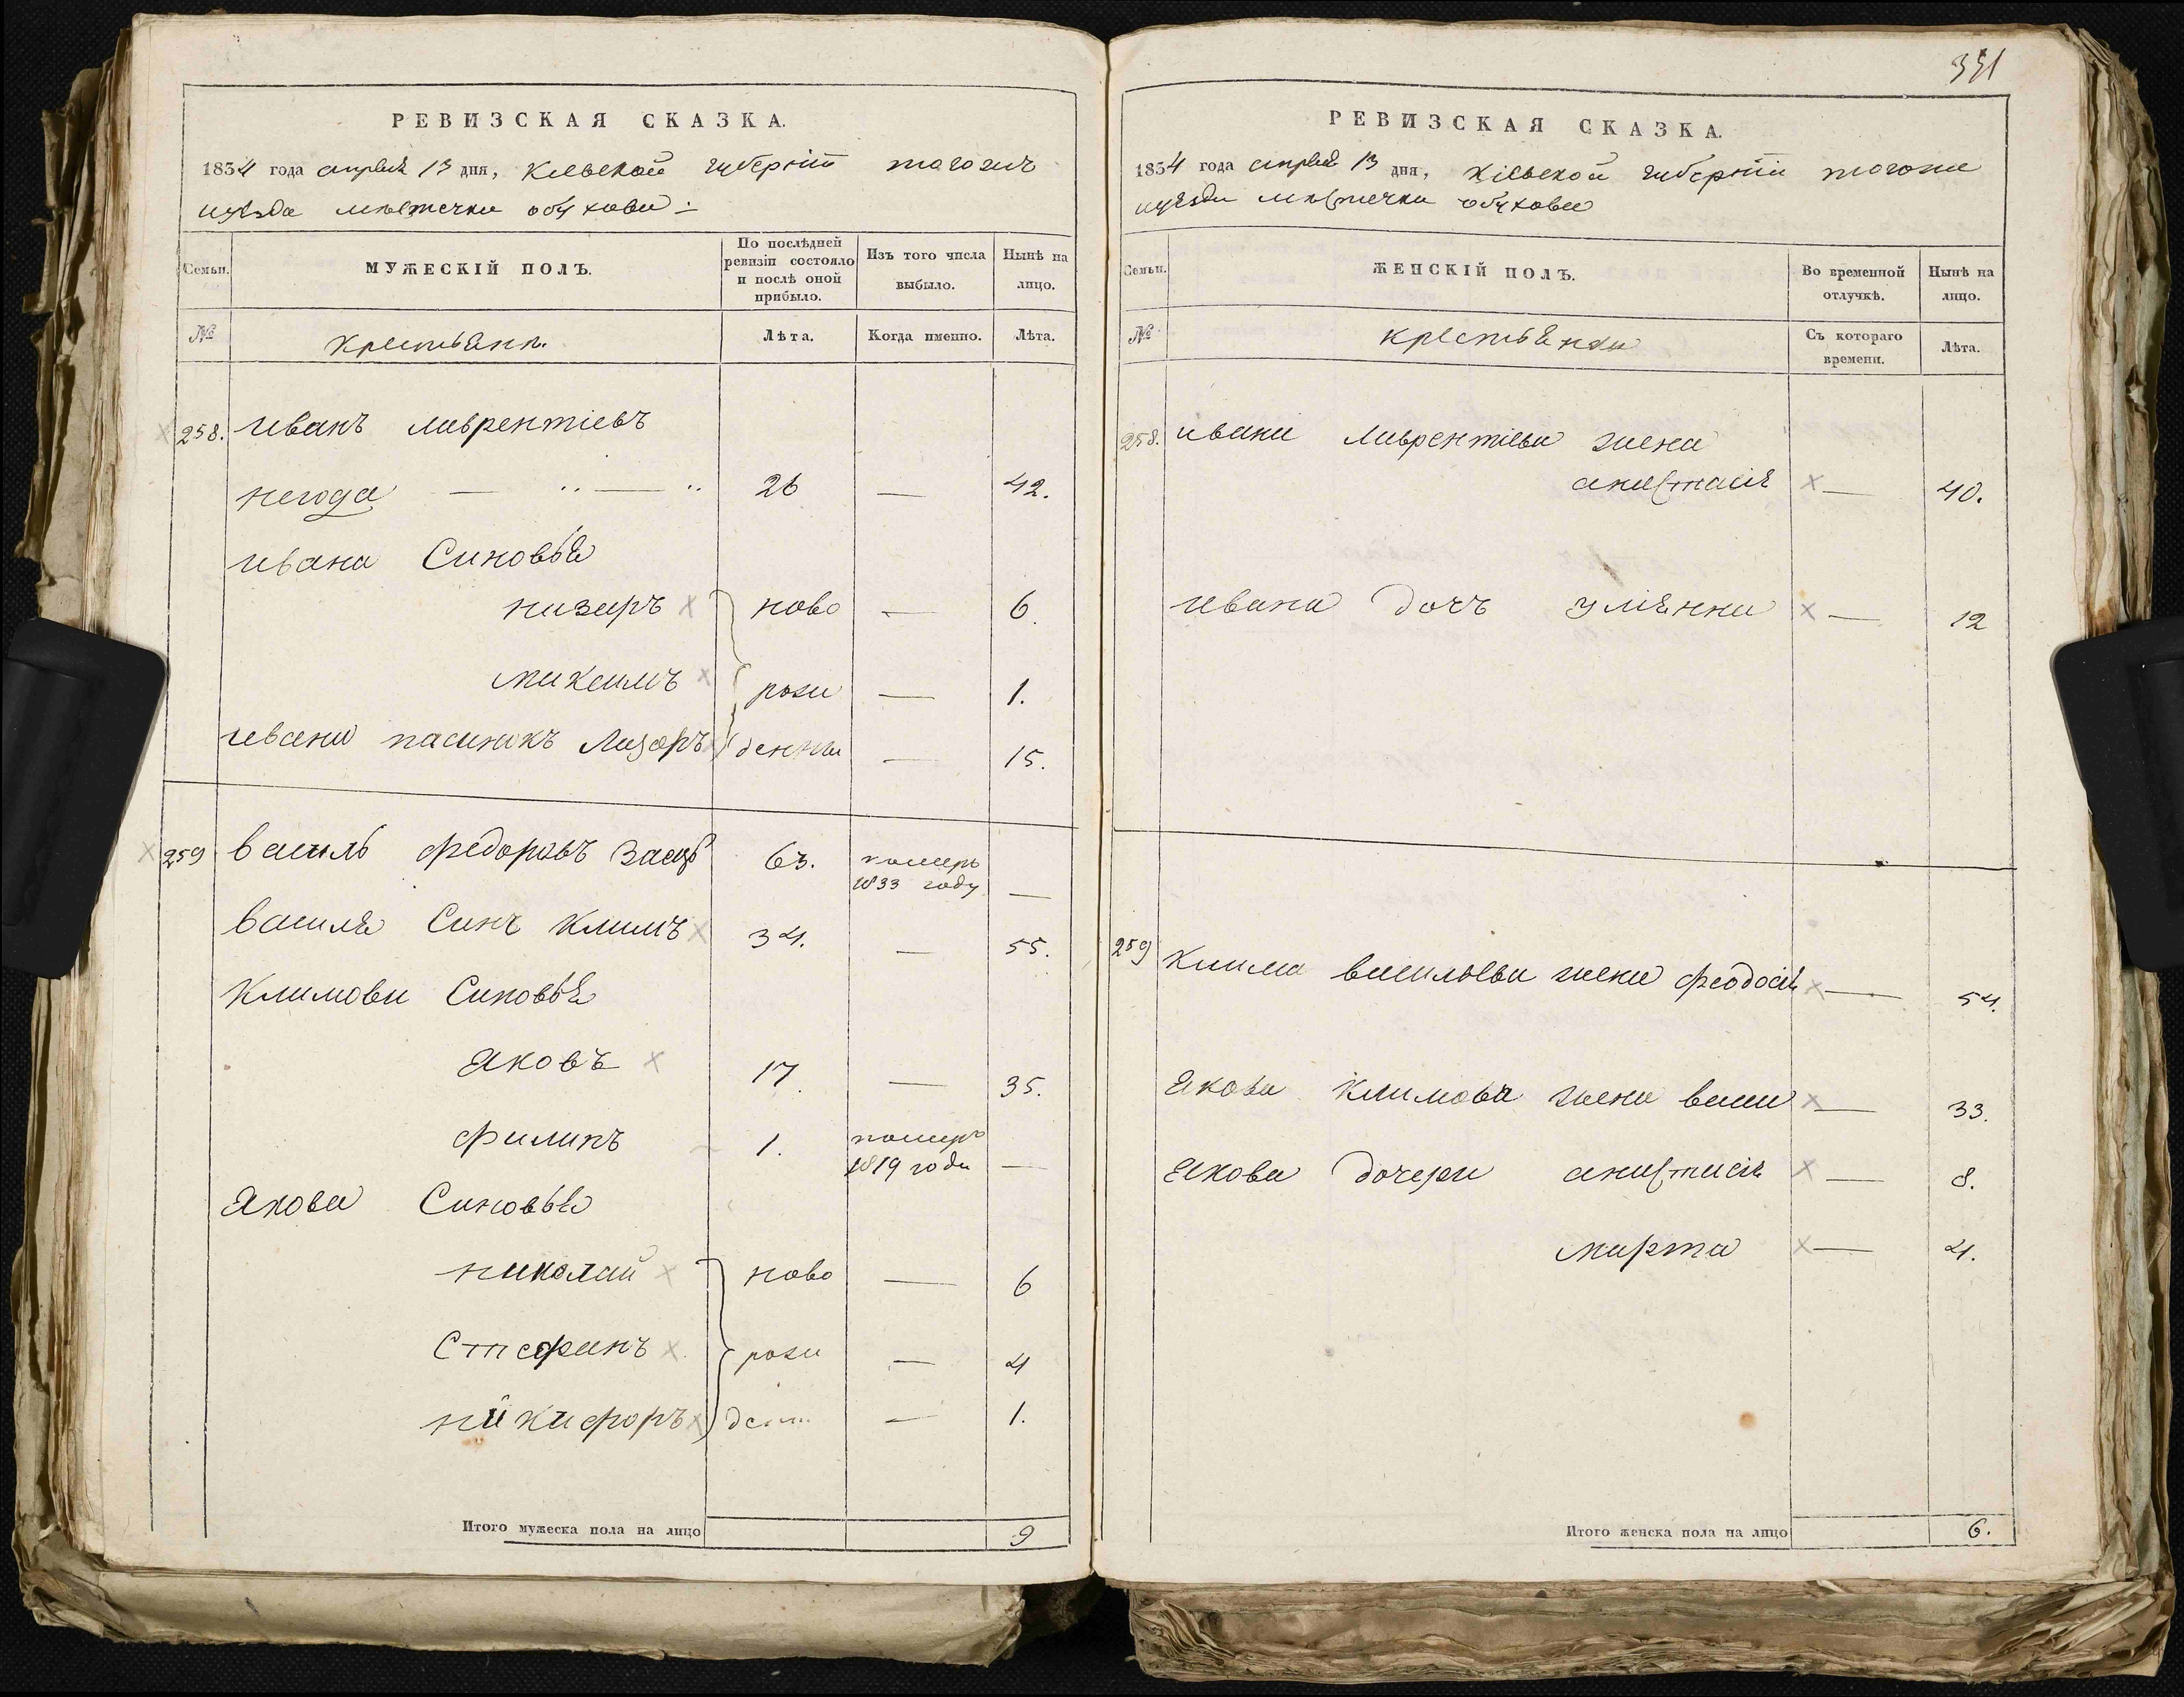 РЕВИЗСКАЯ СКАЗКА.
1834 года апреля 13 дня, Кіевской губерніи тогожъ
уезда местечка обухова :
Семьи. МУЖЕСКІЙ ПОЛЪ. По послѣдней ревизіи состояло и послѣ оной прибыло. Изъ того числа выбыло. Нынѣ на лицо.
№ крестьяни. Лѣта. Когда именно. Лѣта.
258. иванъ лаврентіевъ
негода — .. — .. 26 — 42.
ивана Синовья
назаръ ново — 6.
максимъ рожи — 1.
ивана пасинокъ Лазаръ денни — 15.
259 василь федоровъ 63. померъ 1833 году —
василя Синъ Климъ 34. — 55.
Климови Синовья
Яковъ 17. — 35.
филипъ 1. померъ 1819 году —
Якова Синовья
николай ново — 6
Стефанъ рожи — 4
никифоръ — 1.
Итого мужеска пола на лицо 9
351
РЕВИЗСКАЯ СКАЗКА.
1834 года апреля 13 дня, Кіевской губерніи тогоже
уезда местечка обухова
Семьи. ЖЕНСКІЙ ПОЛЪ. Во временной отлучкѣ. Нынѣ на лицо.
№ крестьянки Съ котораго времени. Лѣта.
258. ивана Лаврентіева жена
анастасія — 40.
ивана дочъ уліянна — 12
259 Клима васильева жена феодосія — 54.
Якова Климова жена васса — 33.
Якова дочери анастасія — 8.
марта — 4.
Итого женска пола на лицо 6.